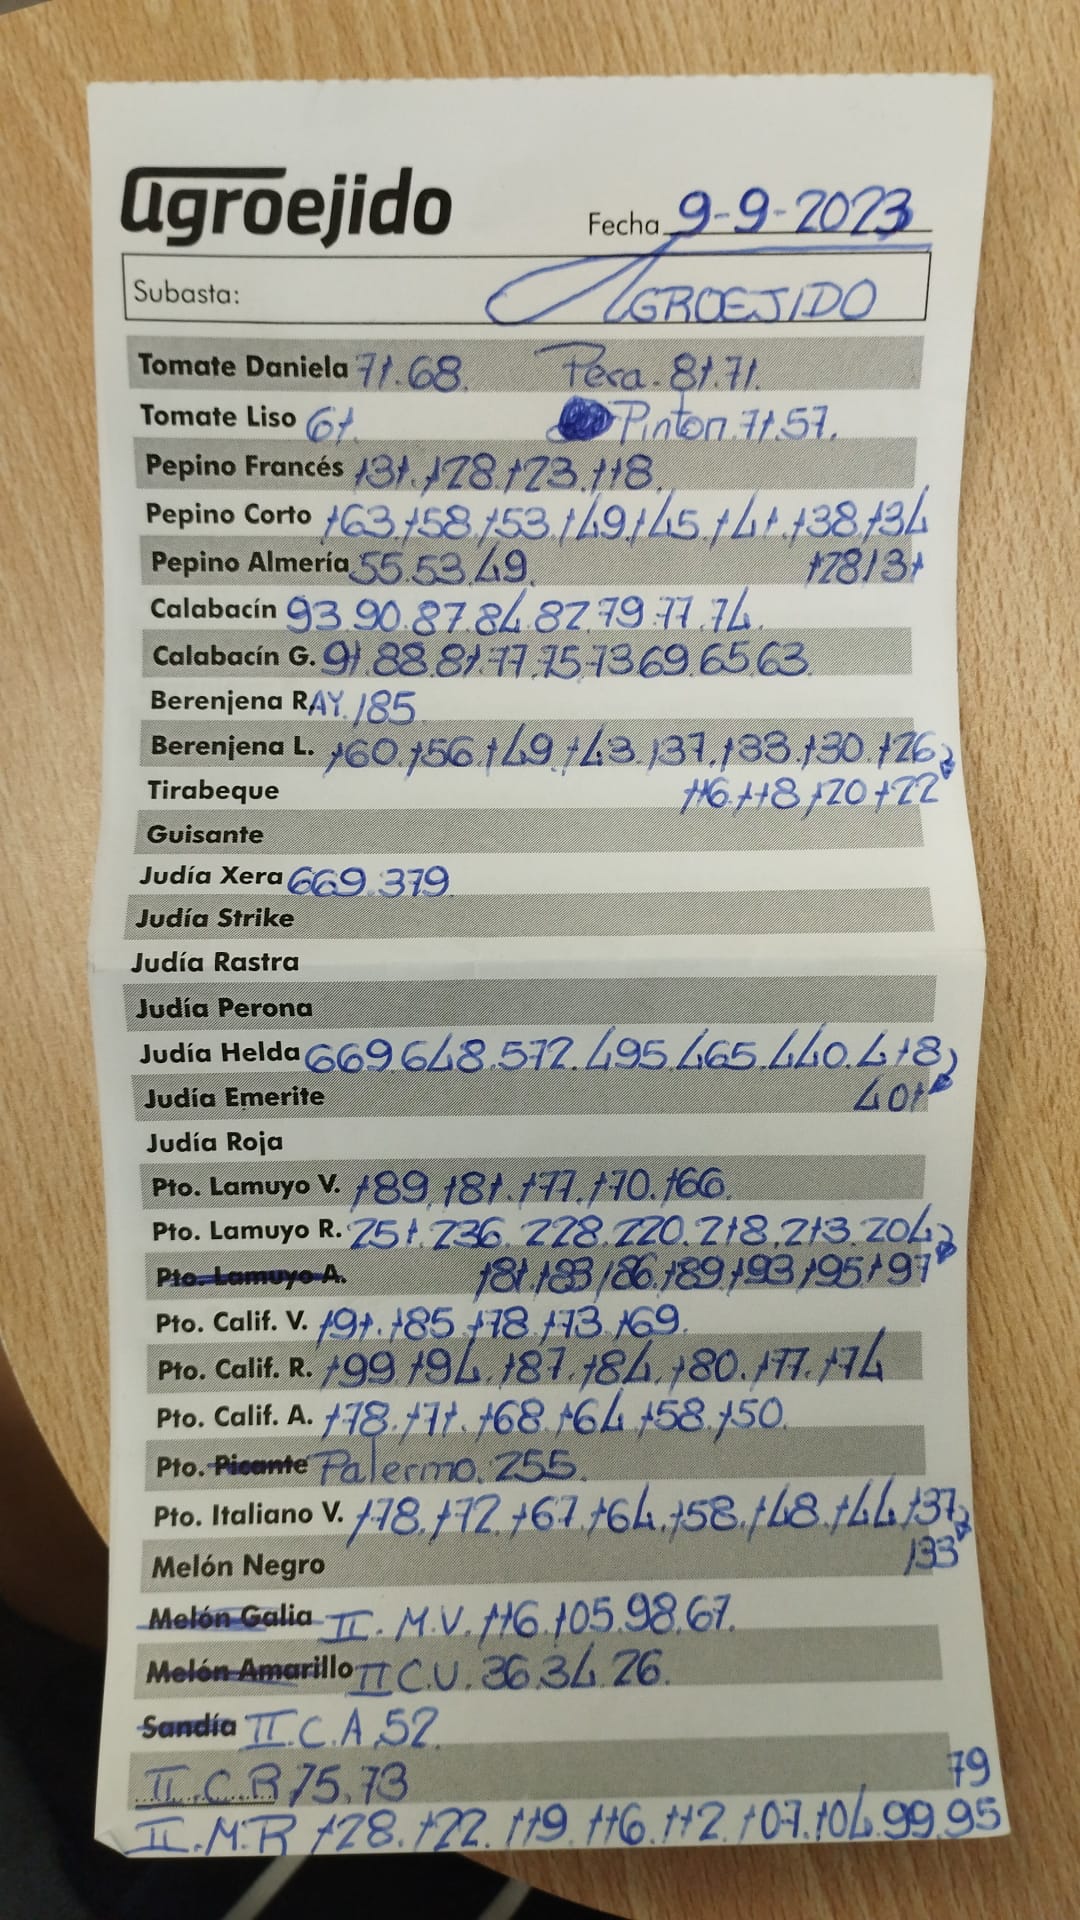 agroejido
Fecha 9-9-2023
Subasta: AGROEJIDO
Tomate Daniela 71.68. Pera.81.71.
Tomate Liso 61. Pinton.71.57.
Pepino Francés 131.128.123.118.
Pepino Corto 163.158.153.149.145.141.138.134
Pepino Almería 55.53.49. 128131
Calabacín 93.90.87.84.82.79.77.74.
Calabacín G. 91.88.81.77.75.73.69.65.63.
Berenjena RAY.185
Berenjena L. 160.156.149.143.137.133.130.126
Tirabeque 116.118.120.122
Guisante
Judía Xera 669.379.
Judía Strike
Judía Rastra
Judía Perona
Judía Helda 669.648.572.495.465.440.418
Judía Emerite 401
Judía Roja
Pto. Lamuyo V. 189.181.177.170.166.
Pto. Lamuyo R. 251.236.228.220.218.213.204
Pto. Lamuyo A. 181.183.186.189.193.195.197
Pto. Calif. V. 191.185.178.173.169.
Pto. Calif. R. 199.194.187.184.180.177.174
Pto. Calif. A. 178.171.168.164.158.150.
Pto. Picante Palermo.255.
Pto. Italiano V. 178.172.167.164.158.148.144.137
Melón Negro 133
Melón Galia II.M.V.116.105.98.67.
Melón Amarillo II C.V.36.34.26.
Sandía II.C.A.52.
II.C.R 75.73 79
II.M.R 128.122.119.116.112.107.104.99.95